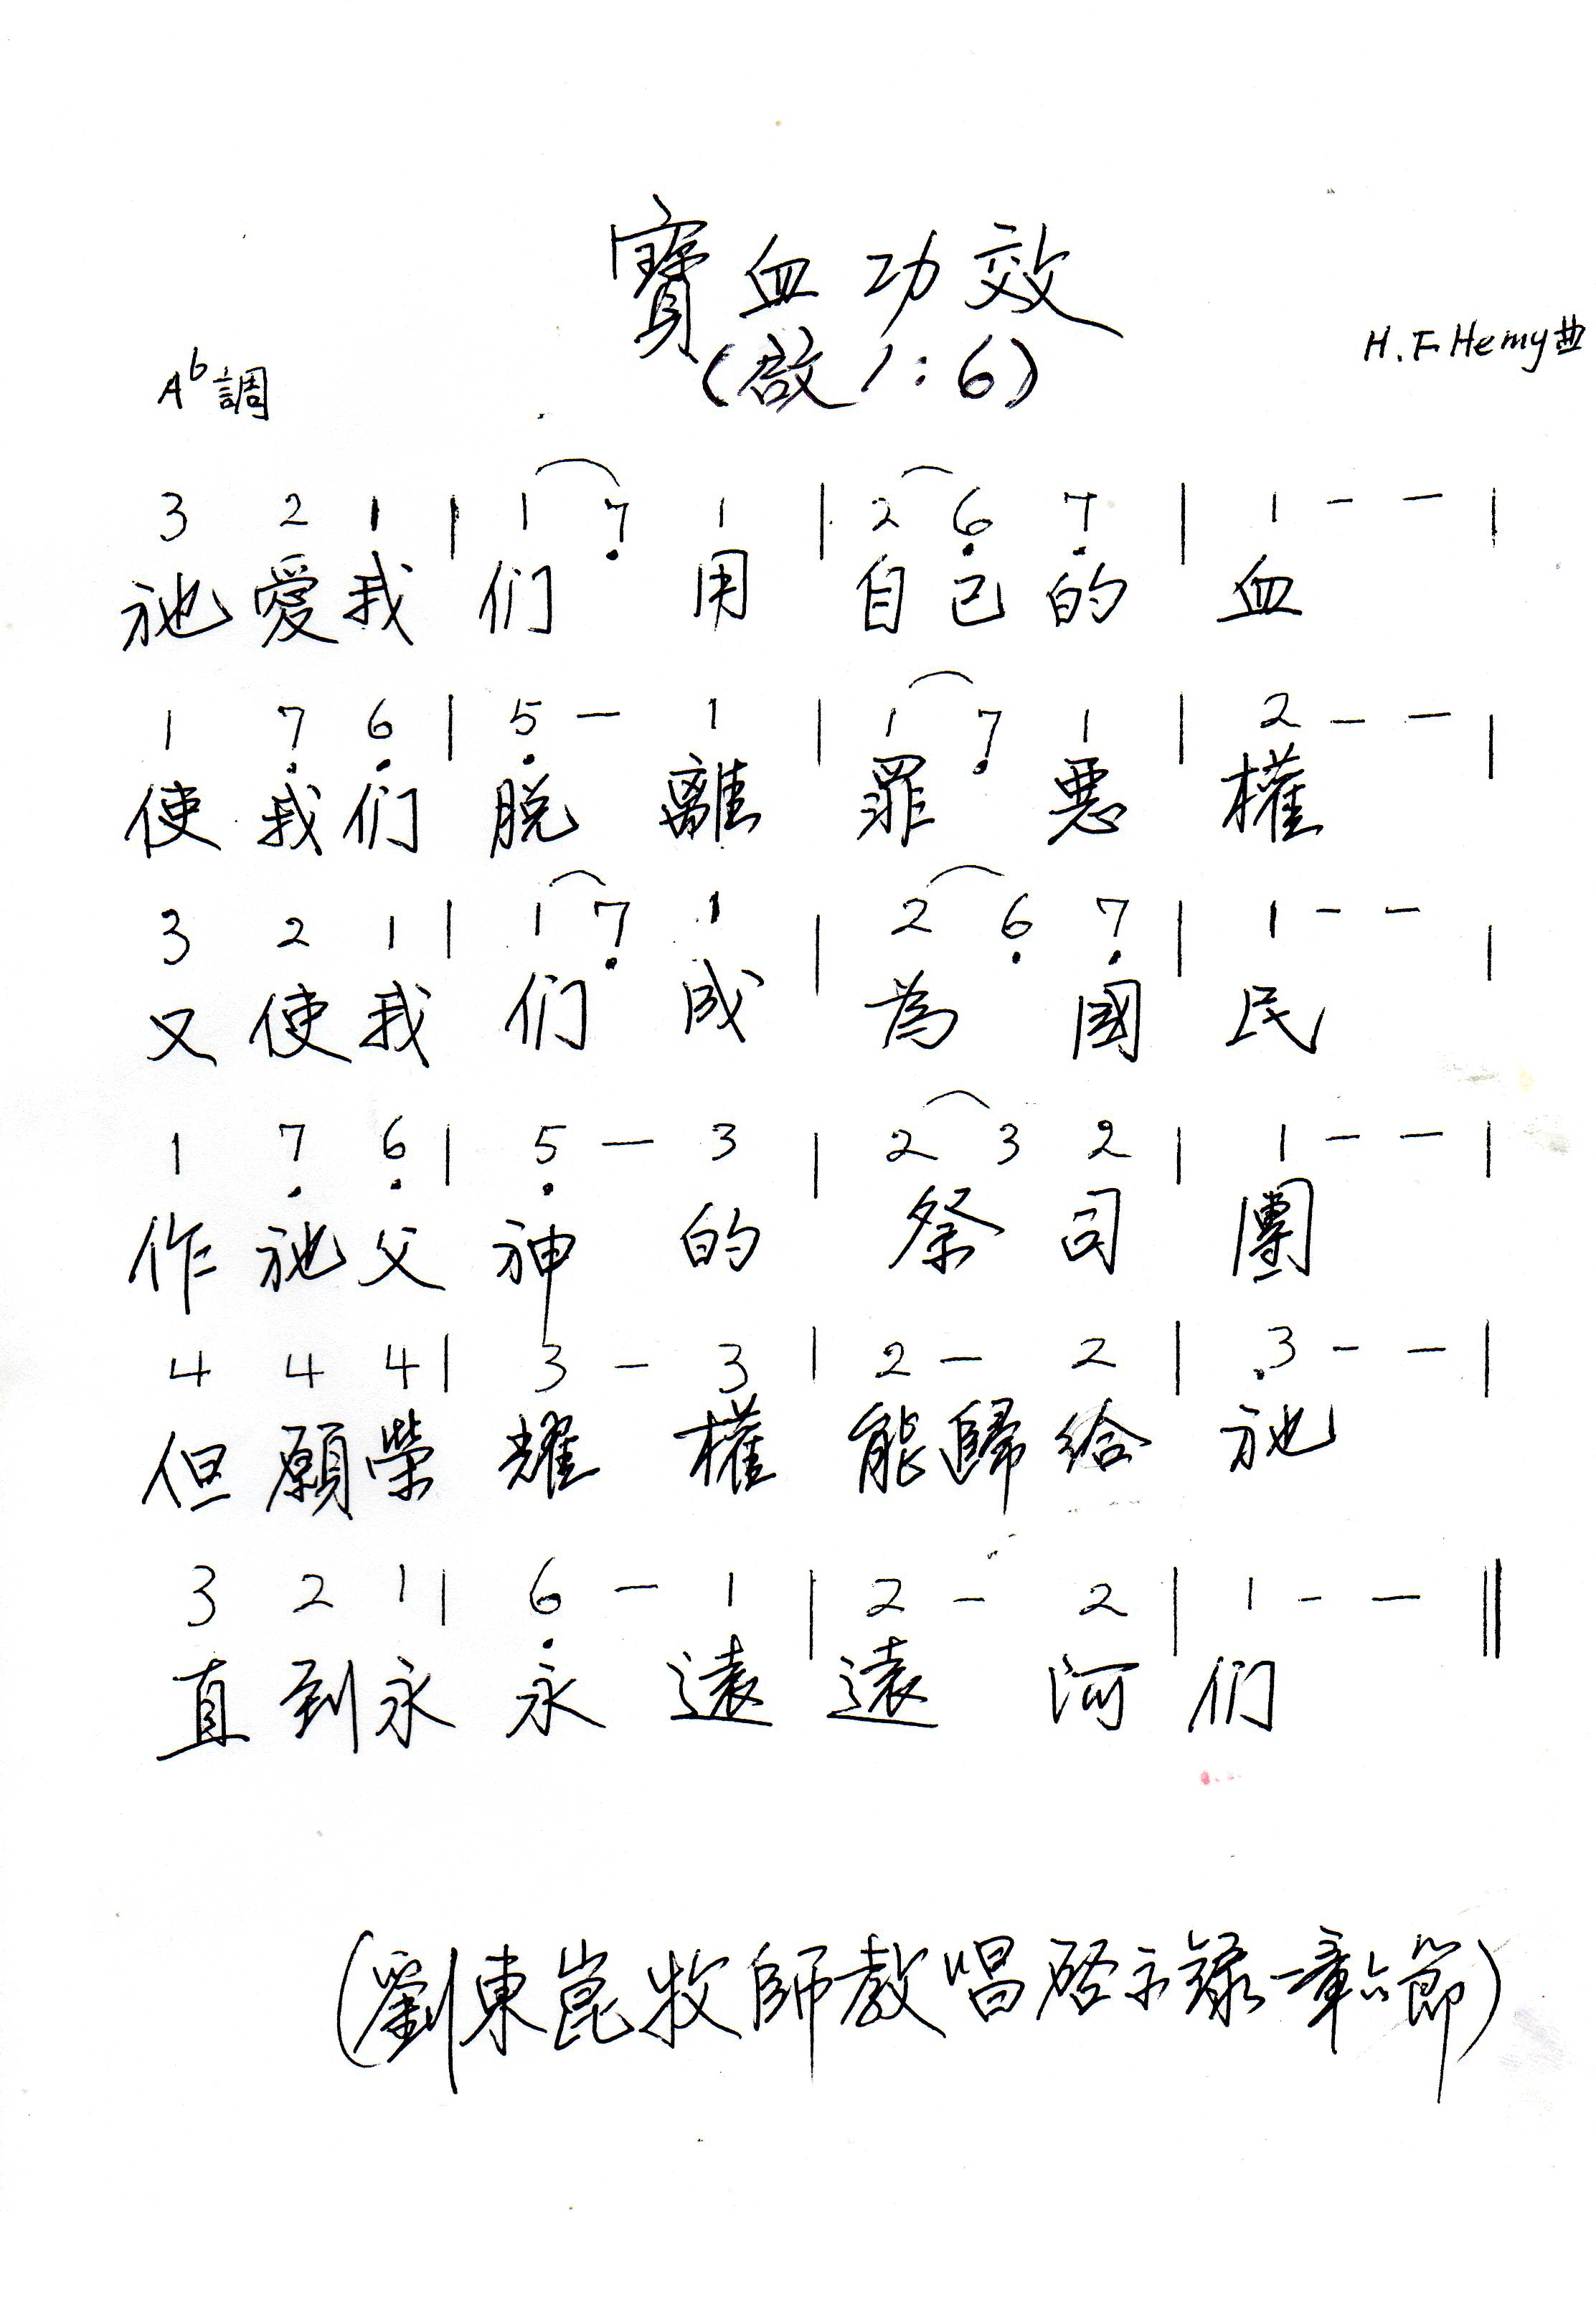 寶血功效
(啟1:6)
H.F.Hemy曲
A♭調
3 2 1 | 1 7̣ 1 | 2 6̣ 7̣ | 1 - - |
祂愛我们用自己的血
1 7̣ 6̣ | 5̣ - 1 | 1 7̣ 1 | 2 - - |
使我们脱離罪惡權
3 2 1 | 1 7̣ 1 | 2 6̣ 7̣ | 1 - - |
又使我们成為國民
1 7̣ 6̣ | 5̣ - 3 | 2 3 2 | 1 - - |
作祂父神的祭司團
4 4 4 | 3 - 3 | 2 - 2 | 3 - - |
但願榮耀權能歸給祂
3 2 1 | 6̣ - 1 | 2 - 2 | 1 - - ‖
直到永永遠遠阿们
(劉東崑牧師教唱啓示錄一章六節)